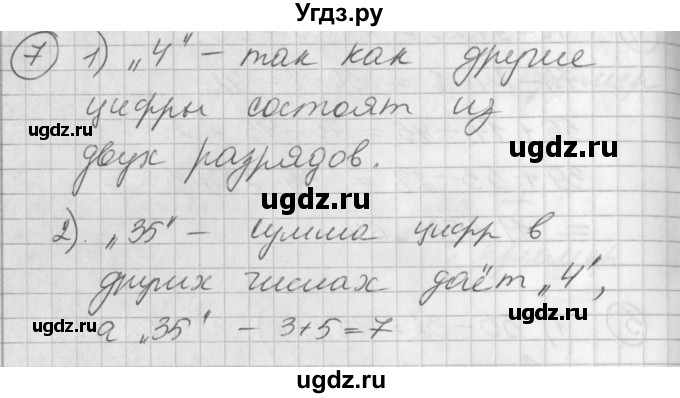 Угдз.ру
7 1) „4" - так как другие
цифры состоят из
uдgz.ru
двух разрядов.
uдgz.ru
uдgz.ru
2). „35" - сумма цифр в
других числах даёт „4",
uдgz.ru
uдgz.ru
а „35" - 3+5=7
uдgz.ru